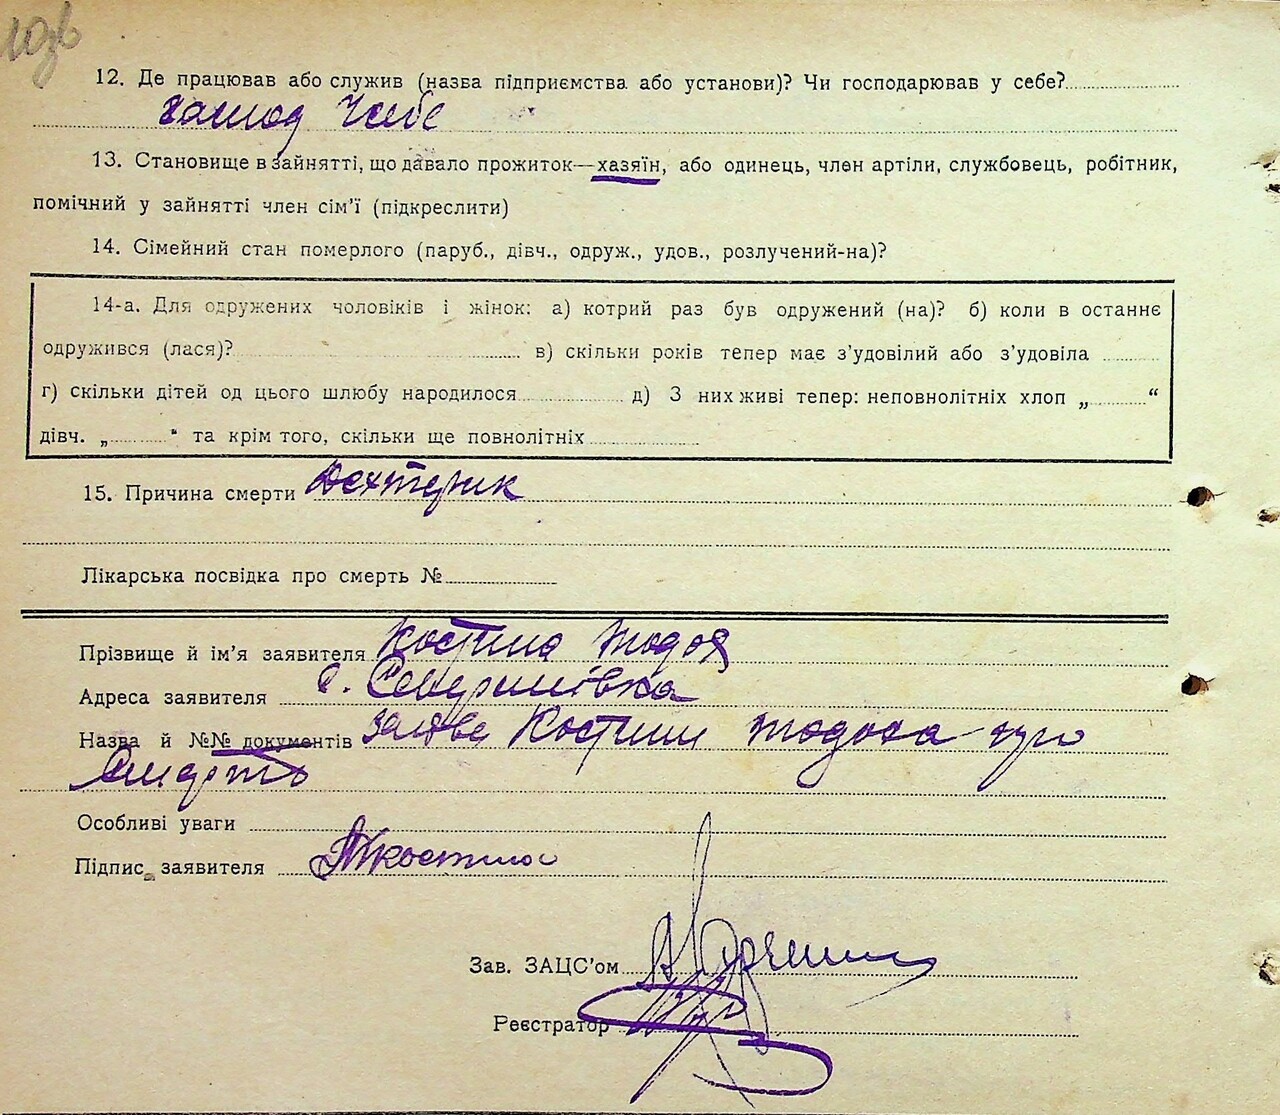 12. Де працював або служив (назва підприємства або установи)? Чи господарював у себе?
13. Становище в зайнятті, що давало прожиток—хазяїн, або одинець, член артіли, службовець, робітник,
помічний у зайнятті член сім’ї (підкреслити)
14. Сімейний стан померлого (паруб., дівч., одруж., удов., розлучений-на)?
14-а. Для одружених чоловіків і жінок: а) котрий раз був одружений (на)? б) коли в останнє
одружився (лася)? в) скільки років тепер має з’удовілий або з’удовіла
г) скільки дітей од цього шлюбу народилося д) З них живі тепер: неповнолітніх хлоп „ “
дівч. „ “ та крім того, скільки ще повнолітніх
15. Причина смерти Дехтерик
Лікарська посвідка про смерть №
Прізвище й ім’я заявителя Костина Тодос
Адреса заявителя с. Северинівка
Назва й №№ документів заява Костини Тодоса про
Смерть
Особливі уваги
Підпис заявителя Т Костина
Зав. ЗАЦС’ом
Реєстратор